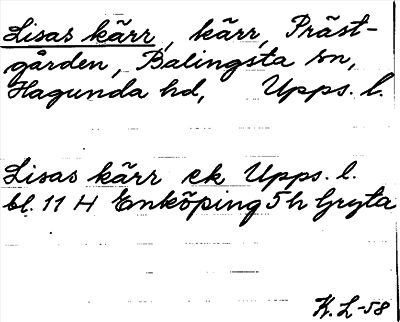 Lisas kärr, kärr, Präst-
gården, Balingsta sn,
Hagunda hd, Upps. l.
Lisas kärr ek Upps. l.
bl. 11 H Enköping 5h Gryta
K. L-58